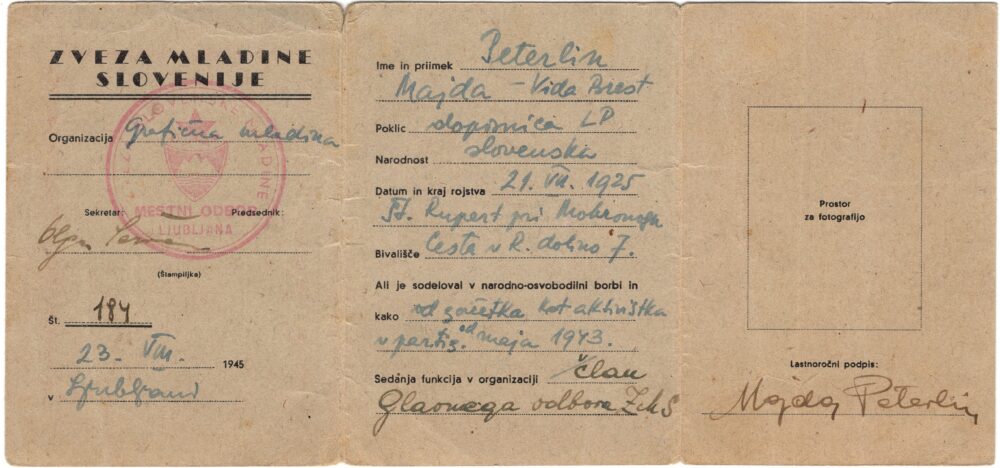 ZVEZA MLADINE
SLOVENIJE
Organizacija Grafična mladina
ZVEZA SLOVENSKE MLADINE
MESTNI ODBOR
LJUBLJANA
Sekretar: Predsednik:
Olga
(Štampiljka)
Št. 184
23. VIII. 1945
v Ljubljani
Ime in priimek Peterlin
Majda – Vida Brest
Poklic dopisnica LP
Narodnost slovenska
Datum in kraj rojstva 21. VII. 1925
Št. Rupert pri Mokronogu
Bivališče Cesta v R. dolino 7.
Ali je sodeloval v narodno-osvobodilni borbi in
kako od začetka kot aktivistka
v partiz. od maja 1943.
Sedanja funkcija v organizaciji član
Glavnega odbora ZMS
Prostor
za fotografijo
Lastnoročni podpis:
Majda Peterlin